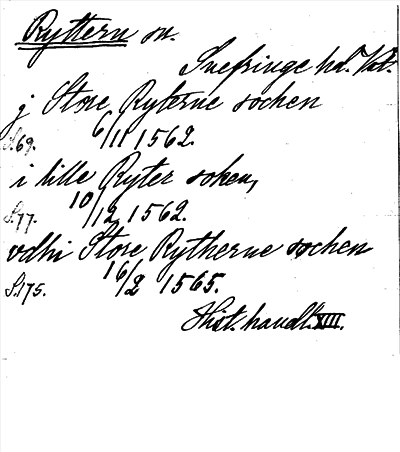 Ryttern sn.
Snefringe hd. Vstm.
j Store Ryterne sochen
S.69. 6/11 1562.
i lille Ryter soken,
S.77. 10/12 1562.
vdhi Store Rytherne sochen
S.175. 16/2 1565.
Hist. handl. XIII.